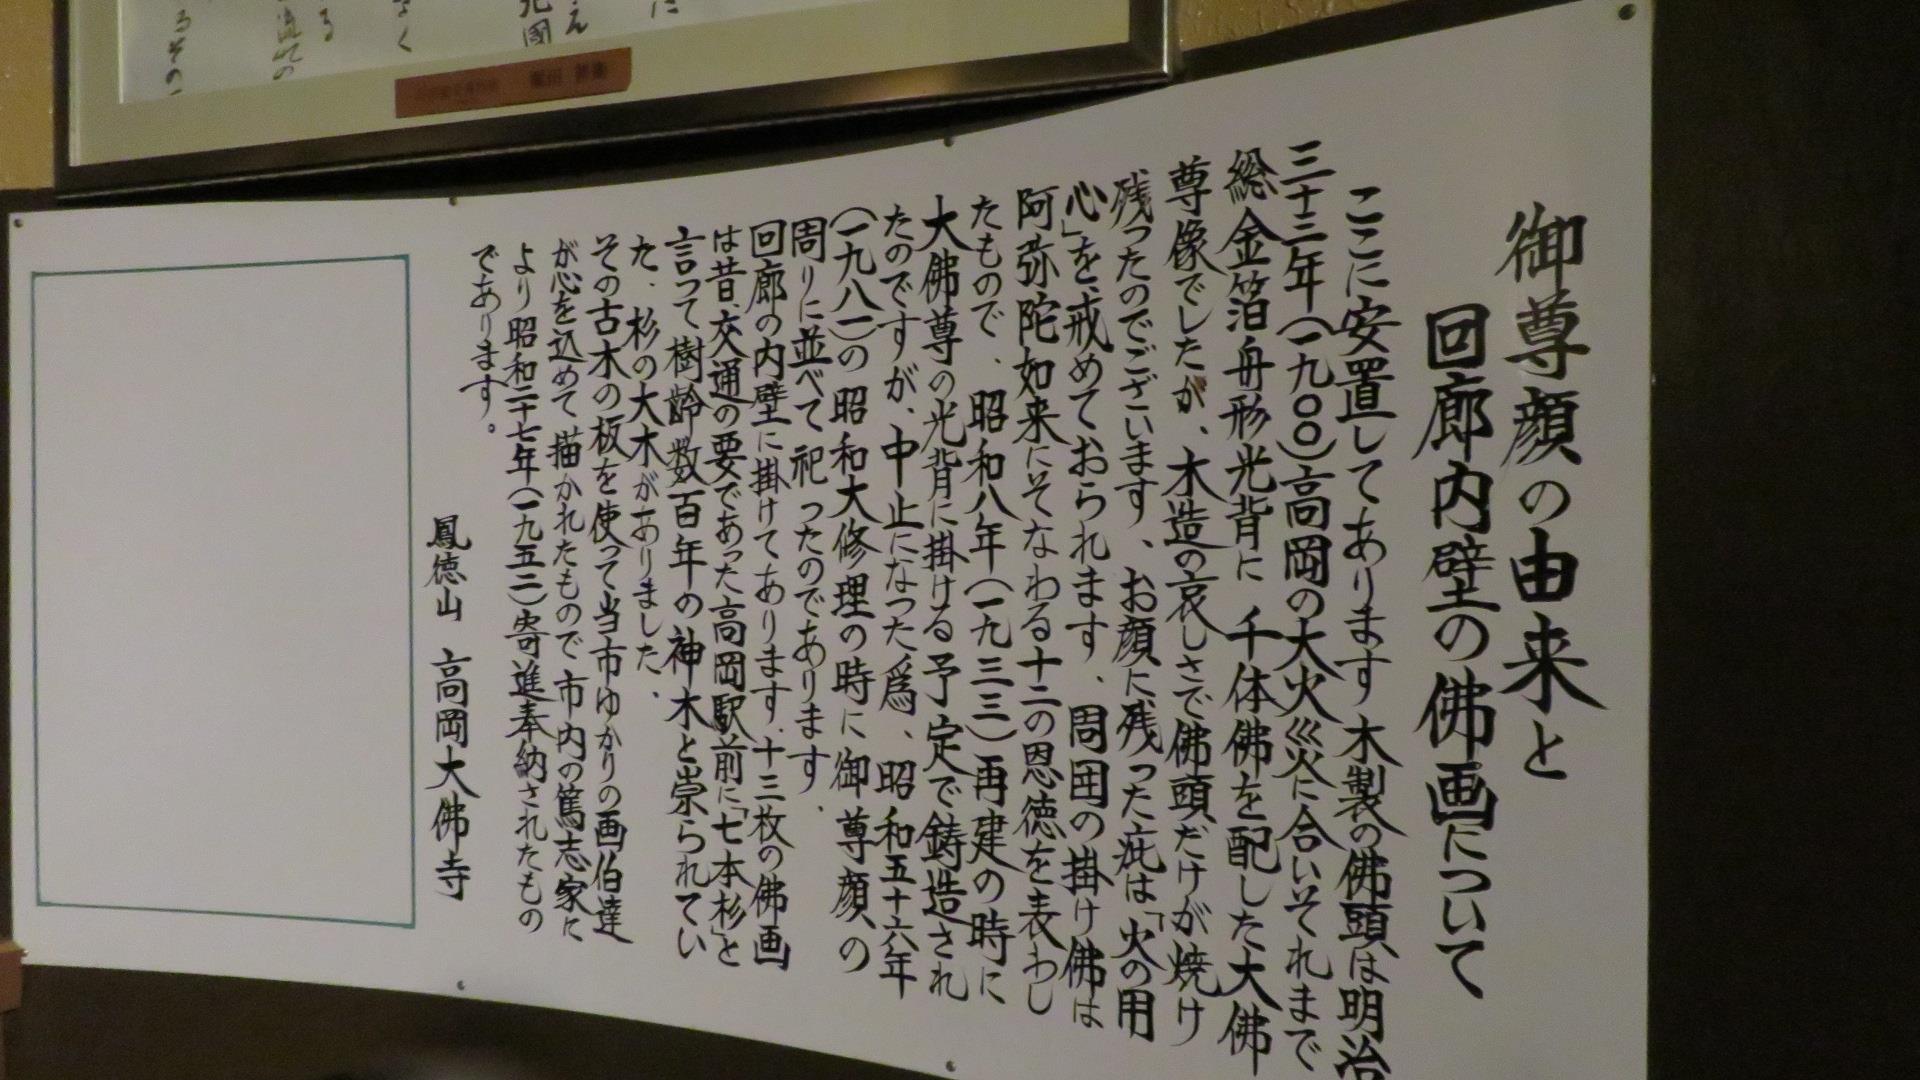 御尊顔の由来と
回廊内壁の佛画について
ここに安置してあります木製の佛頭は明治
三十三年(一九〇〇)高岡の大火災に合いそれまで
総金箔舟形光背に千体佛を配した大佛
尊像でしたが、木造の哀しさで佛頭だけが焼け
残ったのでございます、お顔に残った疵は「火の用
心」を、戒めておられます、周囲の掛け佛は
阿弥陀如来にそなわる十二の恩徳を表わし
たもので、昭和八年(一九三三)再建の時に
大佛尊の光背に掛ける予定で鋳造され
たのですが、中止になつた爲、昭和五十六年
(一九八一)の昭和大修理の時に御尊顔の
周りに並べて祀ったのであります、
回廊の内壁に掛けてあります、十三枚の佛画
は昔、交通の要であった高岡駅前に「七本杉」と
言って樹齢数百年の神木と崇られてい
た、杉の大木がありました、
その古木の板を使って当市ゆかりの画伯達
が心を込めて描かれたもので市内の篤志家に
より昭和二十七年(一九五二)寄進奉納されたもの
であります。
鳳徳山 高岡大佛寺